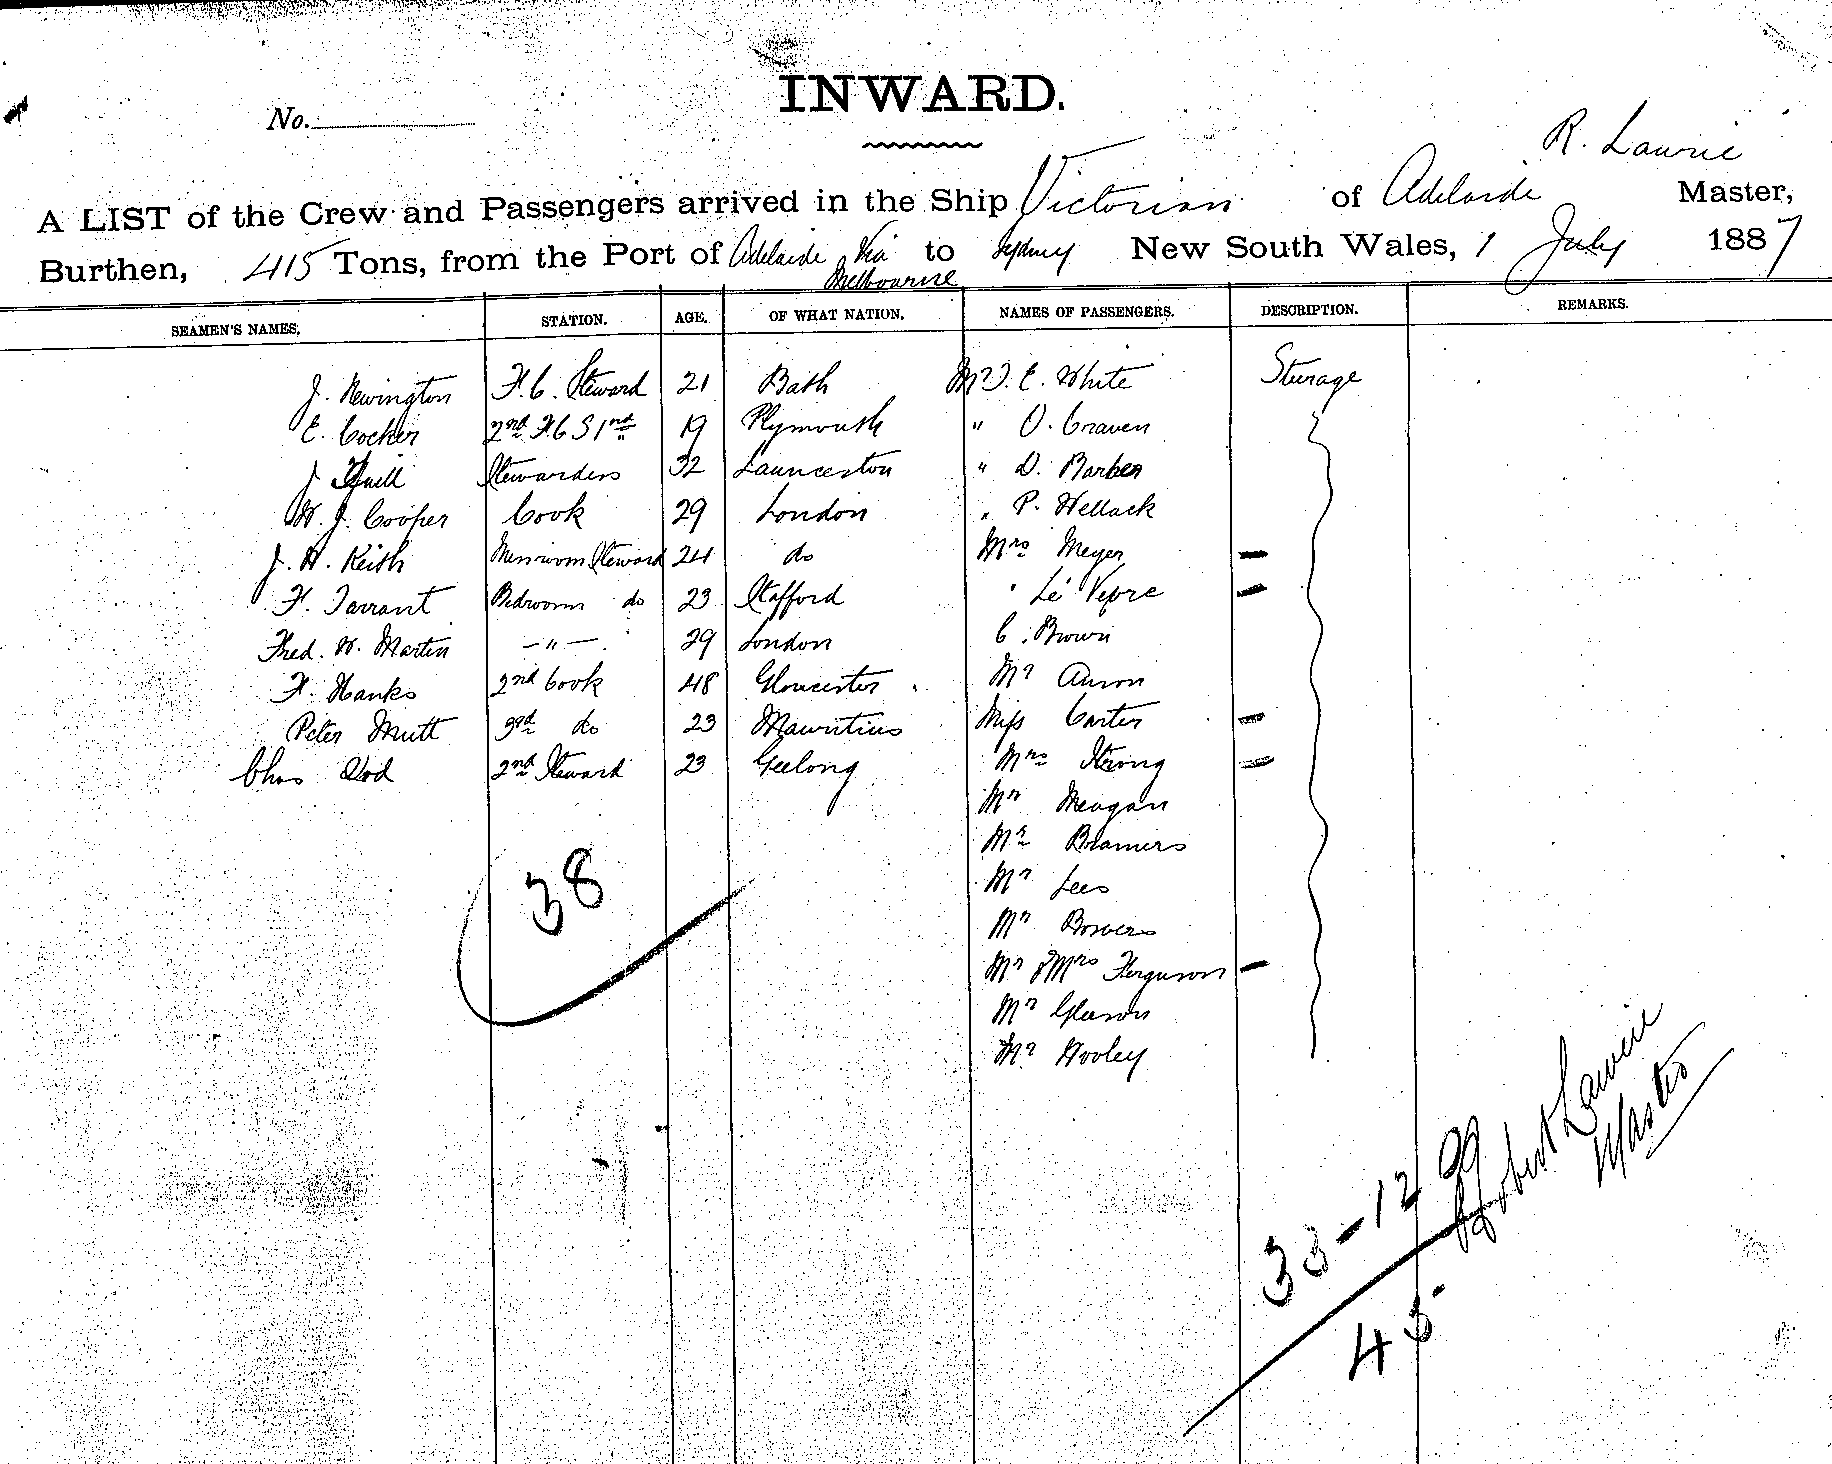 INWARD.
No.
R. Lawrie
A LIST of the Crew and Passengers arrived in the Ship Victorian of Adelaide Master,
Burthen, 415 Tons, from the Port of Adelaide Via Melbourne to Sydney New South Wales, 1 July 1887
SEAMEN'S NAMES. STATION. AGE. OF WHAT NATION. NAMES OF PASSENGERS. DESCRIPTION. REMARKS.
J. Newington F. C. Steward 21 Bath Mr J. E. White Sturage
E. Cocker 2nd F C S 1nd 19 Plymouth " O. Craven
J. Stewardess 32 Launceston " D. Barber
W. J. Cooper Cook 29 London " P. Wellack
J. H. Keith Messroom Steward 24 do Mrs Meyer —
F. Tarrant Bedroom do 23 Stafford " Le —
Fred. W. Martin — " — 29 London C. Brown
F. Hanks 2nd Cook 48 Gloucester Mr
Peter Mutt 3rd do 23 Mauritius Miss Carter —
Chas 2nd Steward 23 Geelong Mrs Strong —
Mr Meagan
Mr
Mr Lees
Mr Bowers
Mr & Mrs Ferguson —
Mr Gleeson
Mr Hooley
38
33-12
45
Robert Lawrie
Master